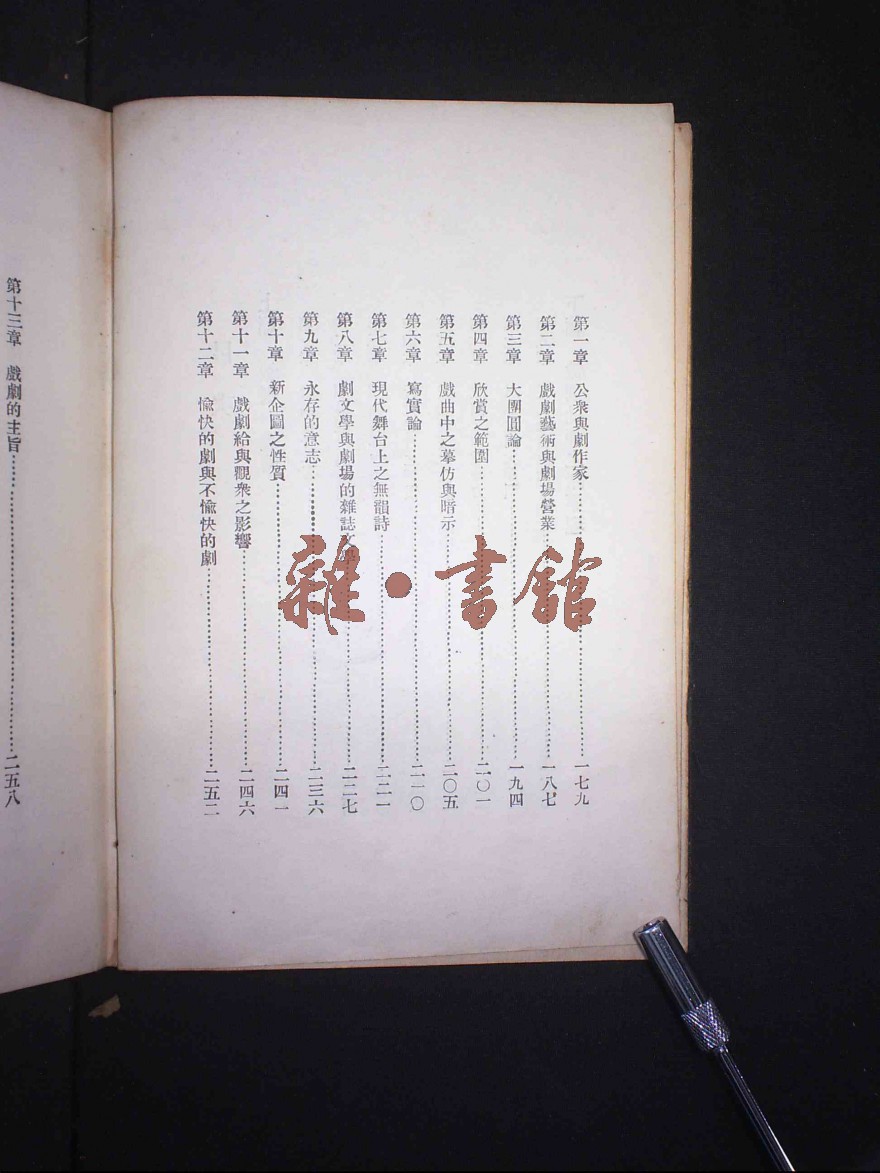 第一章 公衆與劇作家……一七九
第二章 戲劇藝術與劇場營業……一八七
第三章 大團圓論……一九四
第四章 欣賞之範圍……二〇一
第五章 戲曲中之摹仿與暗示……二〇五
第六章 寫實論……二一〇
第七章 現代舞台上之無韻詩……二二一
第八章 劇文學與劇場的雜誌文……二二七
第九章 永存的意志……二三六
第十章 新企圖之性質……二四一
第十一章 戲劇給與觀衆之影響……二四六
第十二章 愉快的劇與不愉快的劇……二五二
第十三章 戲劇的主旨……二五八
雜·書館